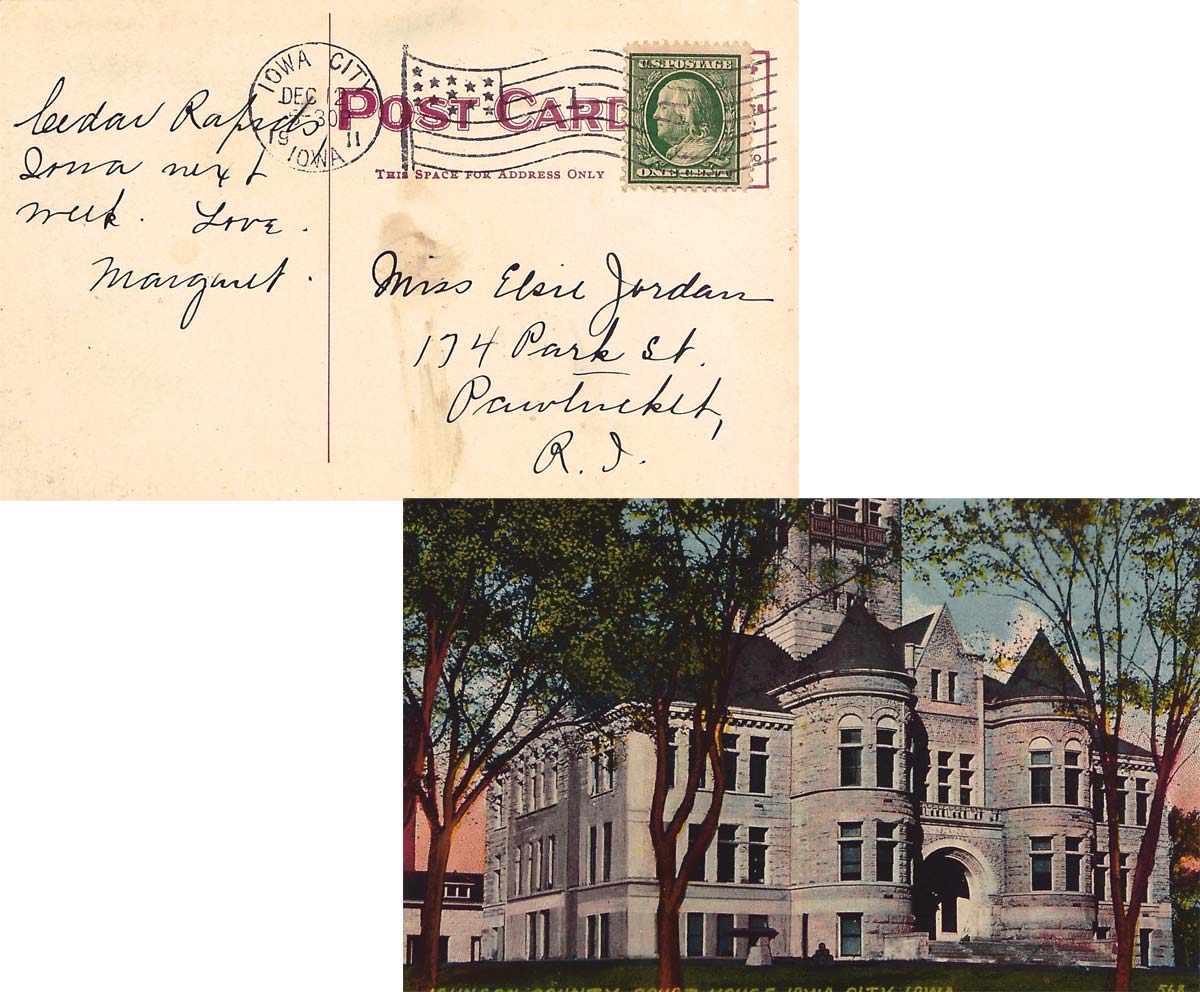 Cedar Rapids
Iowa next
week. Love.
Margaret.
IOWA CITY
DEC 12
30
19 11
IOWA
POST CARD
THIS SPACE FOR ADDRESS ONLY
U.S. POSTAGE
ONE CENT
Miss Elsie Jordan
174 Park St.
Pawtucket,
R. I.
JOHNSON COUNTY COURT HOUSE IOWA CITY IOWA
568